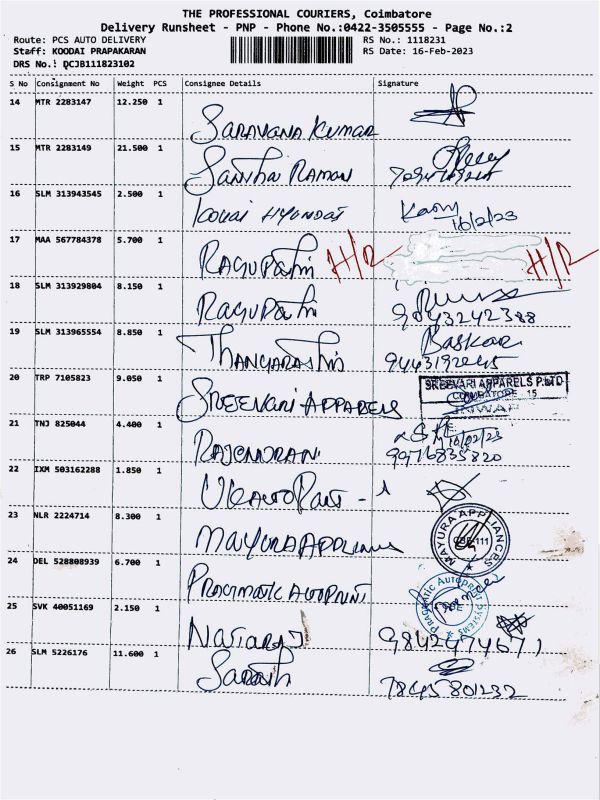 THE PROFESSIONAL COURIERS, Coimbatore
Delivery Runsheet - PNP - Phone No.:0422-3505555 - Page No.:2
Route: PCS AUTO DELIVERY RS No.: 1118231
Staff: KOODAI PRAPAKARAN RS Date: 16-Feb-2023
DRS No.: QCJB111823102
S No Consignment No Weight PCS Consignee Details Signature
14 MTR 2283147 12.250 1
SARAVANA KUMAR
15 MTR 2283149 21.500 1
RAMAN
16 SLM 313943545 2.500 1
KOVAI HYUNDAI
16/2/23
17 MAA 567784378 5.700 1
RAGUPATHI H/R H/R
18 SLM 313929804 8.150 1
RAGUPATHI 9043242388
19 SLM 313965554 8.850 1
Baskar
20 TRP 7105823 9.050 1
SREEVARI APPARELS P.LTD
COIMBATORE - 15
INWARD
SREEVARI APPARELS
21 TNJ 825044 4.400 1
16/02/23
RAJENDRAN 9976835820
22 IXM 503162288 1.850 1
23 NLR 2224714 8.300 1
MAYURA APPLIANCES
MAYURA APPLIANCES
24 DEL 528808939 6.700 1
PRAGMATIC AUTOPRINT
Pragmatic Autoprint Systems
25 SVK 40051169 2.150 1
NATARAJ 9842474671
26 SLM 5226176 11.600 1
7845801232